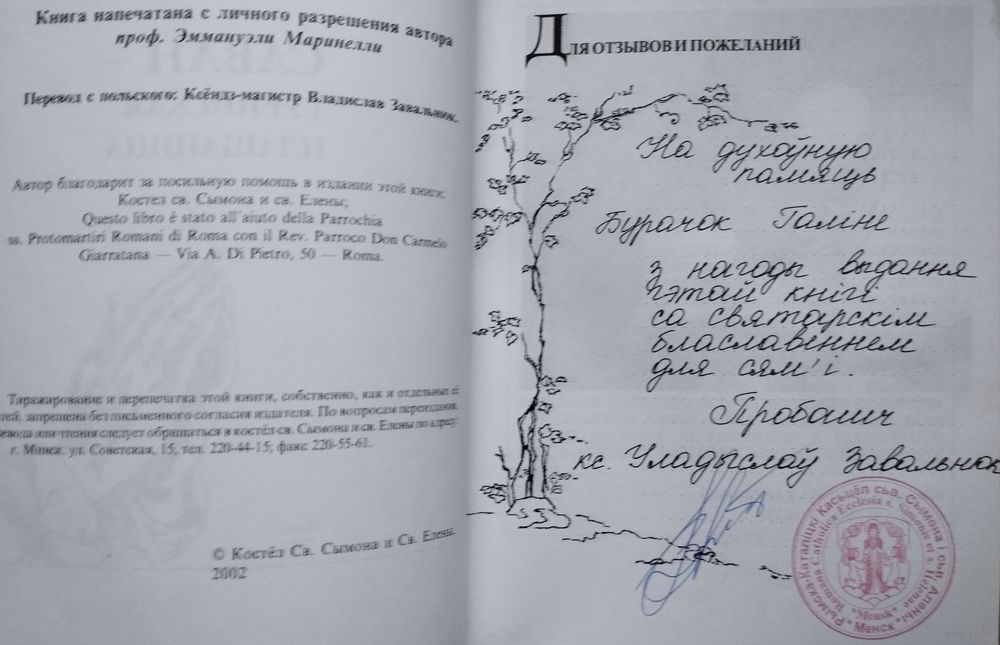 Книга напечатана с личного разрешения автора
проф. Эммануэли Маринелли
Перевод с польского: Ксёндз-магистр Владислав Завальнюк.
Автор благодарит за посильную помощь в издании этой книги:
Костел св. Сымона и св. Елены;
Questo libro é stato all'aiuto della Parrochia
ss. Protomartiri Romani di Roma con il Rev. Parroco Don Carmelo
Giarratana — Via A. Di Pietro, 50 — Roma.
Тиражирование и перепечатка этой книги, собственно, как и отдельных
запрещена без письменного согласия издателя. По вопросам переиздания,
или чтения следует обращаться в костёл св. Сымона и св. Елены по адресу:
г. Минск. ул. Советская, 15, тел. 220-44-15; факс 220-55-61.
© Костёл Св. Сымона и Св. Елены,
2002
Для отзывов и пожеланий
На духоўную
памяць
Бурачок Галіне
з нагоды выдання
гэтай кнігі
са святарскім
блаславеннем
для сям'і.
Пробашч
кс. Уладыслаў Завальнюк
Рымска-Каталіцкі Касьцёл сьв. Сымона і сьв. Алены
Romana Catholica Ecclesia s. Simonis et s. Helenae
*Mensk*
* Менск *